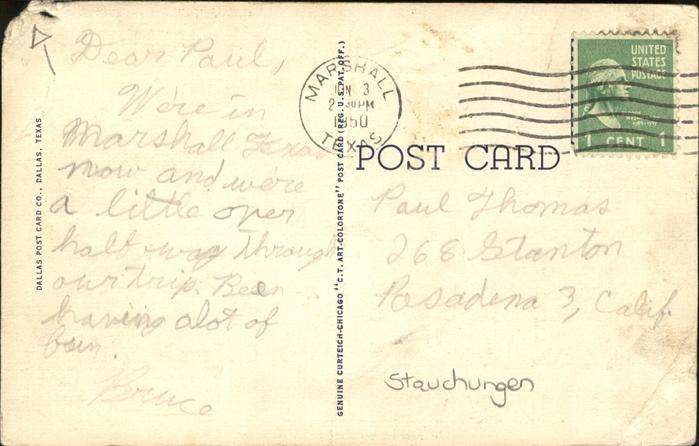 Dear Paul,
We're in
Marshall Texas
now and we're
a little over
half way through
our trip. Been
having alot of
fun.
Bruce
DALLAS POST CARD CO., DALLAS, TEXAS
GENUINE CURTEICH-CHICAGO "C.T. ART-COLORTONE" POST CARD (REG. U.S. PAT. OFF.)
MARSHALL
3
2 30PM
1950
TEXAS
UNITED
STATES
POSTAGE
1 CENT 1
POST CARD
Paul Thomas
268 Stanton
Pasadena 3, Calif.
Stauchungen